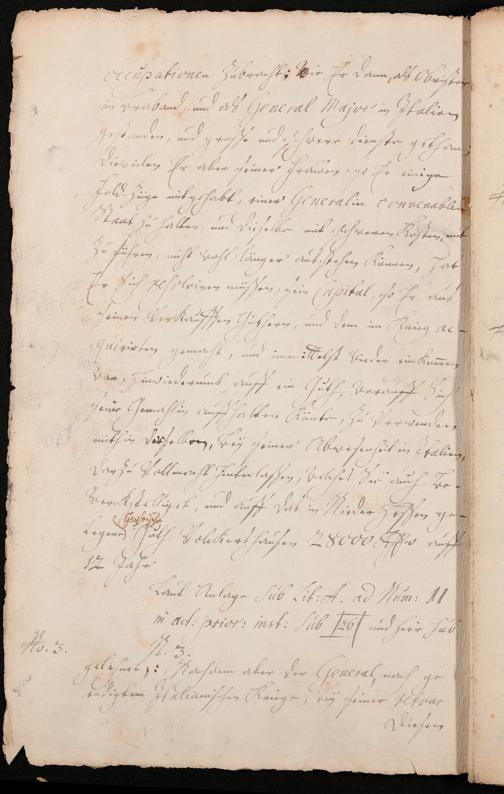 occupationen zubracht: Wie Er dann, als Obrister
in Braband, und als General Major in Italien
gestanden, und grosse und schwere dienste gethan,
Dieweilen Er aber seiner Frauen, so Er einige
Feld-Züge mitgehabt, einen Generalin convenablen
Staat zu halten, und dieselbe mit schweren Kosten, mit
zu führen, nicht wohl länger ausstehen können, hat
Er sich resolviren müssen, sein Capital, so Er aus
seinen verkaufften Güthern, und dem im Krieg ac-
quirirten gemacht, und immittelst wieder einkommen
war, hinwiederumb auff ein Guth, worauff Sich
seine Gemahlin auffhalten könte, zu verwenden
mithin derselben, bey seiner Abwesenheit in Italien,
darzu Vollmacht hinterlassen, welches Sie auch be-
werckstelliget, und auff das in Nieder Hessen ge-
legene Guth Volckershausen 28000 auff
12 Jahr
Laut Anlage Sub Lit: A. ad Num: 11
in act: prior: inst: Sub 26 und hier sub
No. 3.
N. 3.
gelehnet,: Nachdem aber der General, nach ge
endigtem Italianischen Kriege, bey seiner retour
diesen